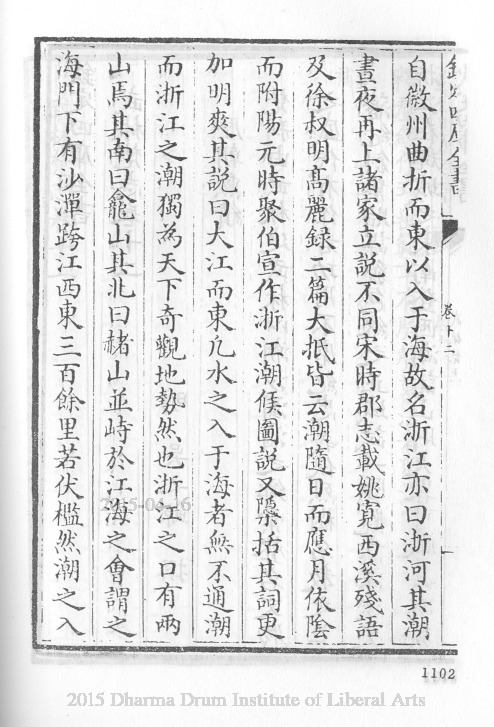 欽定四庫全書
卷十二
自徽州曲折而東以入于海故名浙江亦曰浙河其潮
晝夜再上諸家立說不同宋時郡志載姚寛西溪殘語
及徐叔明髙麗録二篇大抵皆云潮隨日而應月依陰
而附陽元時聚伯宣作浙江潮候圖說又櫽括其詞更
加明爽其說曰大江而東凡水之入于海者無不通潮
而浙江之潮獨為天下奇觀地勢然也浙江之口有兩
山焉其南曰龕山其北曰赭山並峙於江海之會謂之
海門下有沙潬跨江西東三百餘里若伏檻然潮之入
1102
2015 Dharma Drum Institute of Liberal Arts